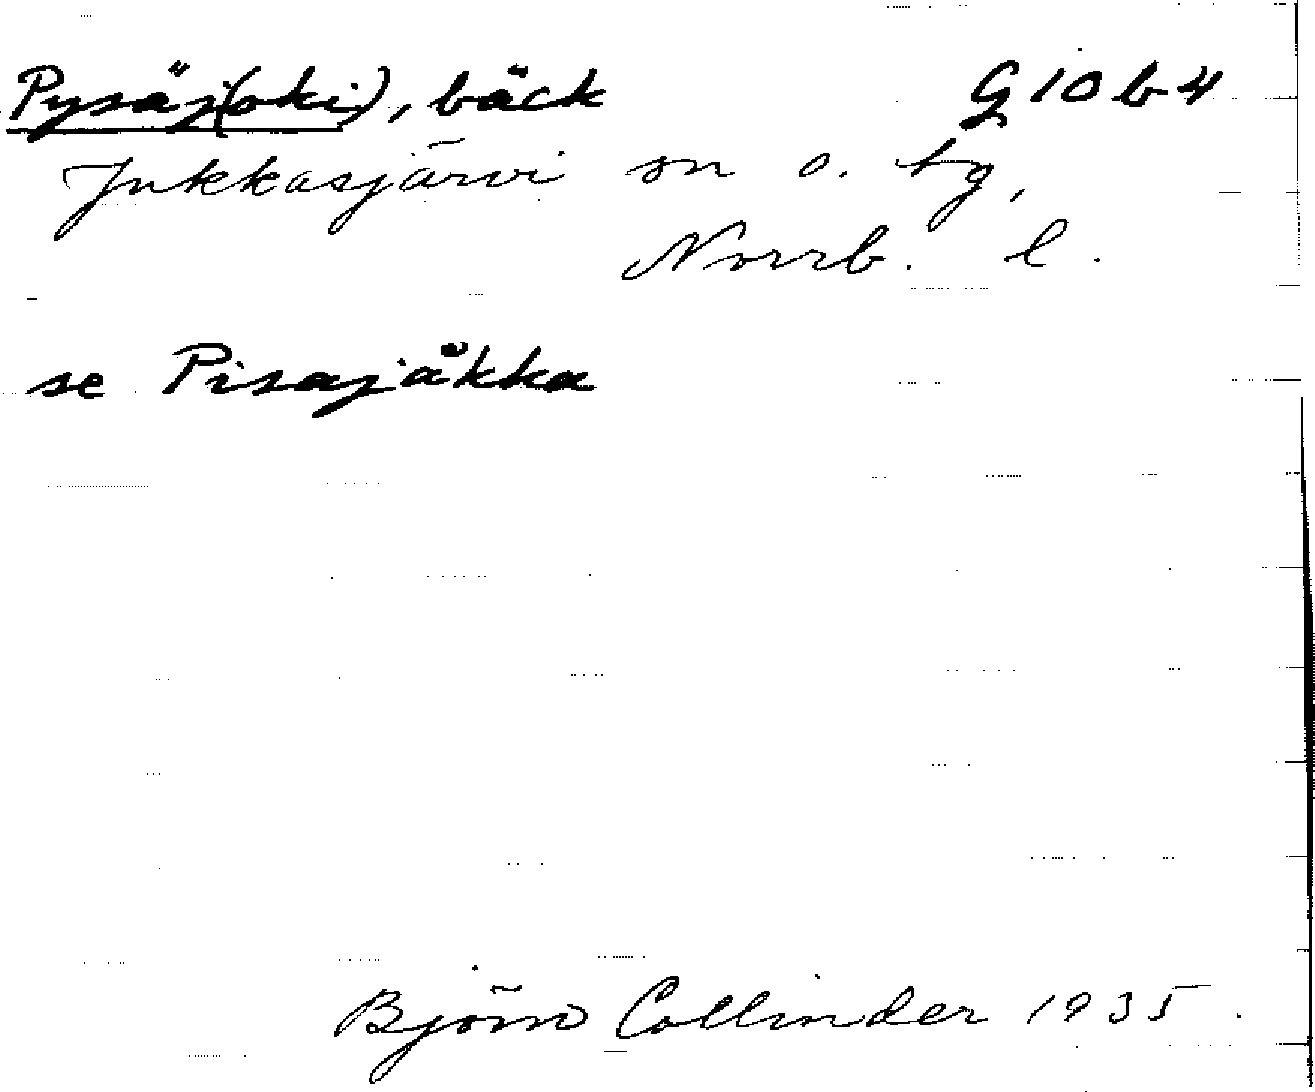 Pysäj(oki), bäck G 10 b 4
Jukkasjärvi sn o. tg,
Norrb. l.
se Pisajåkka
Björn Collinder 1935.